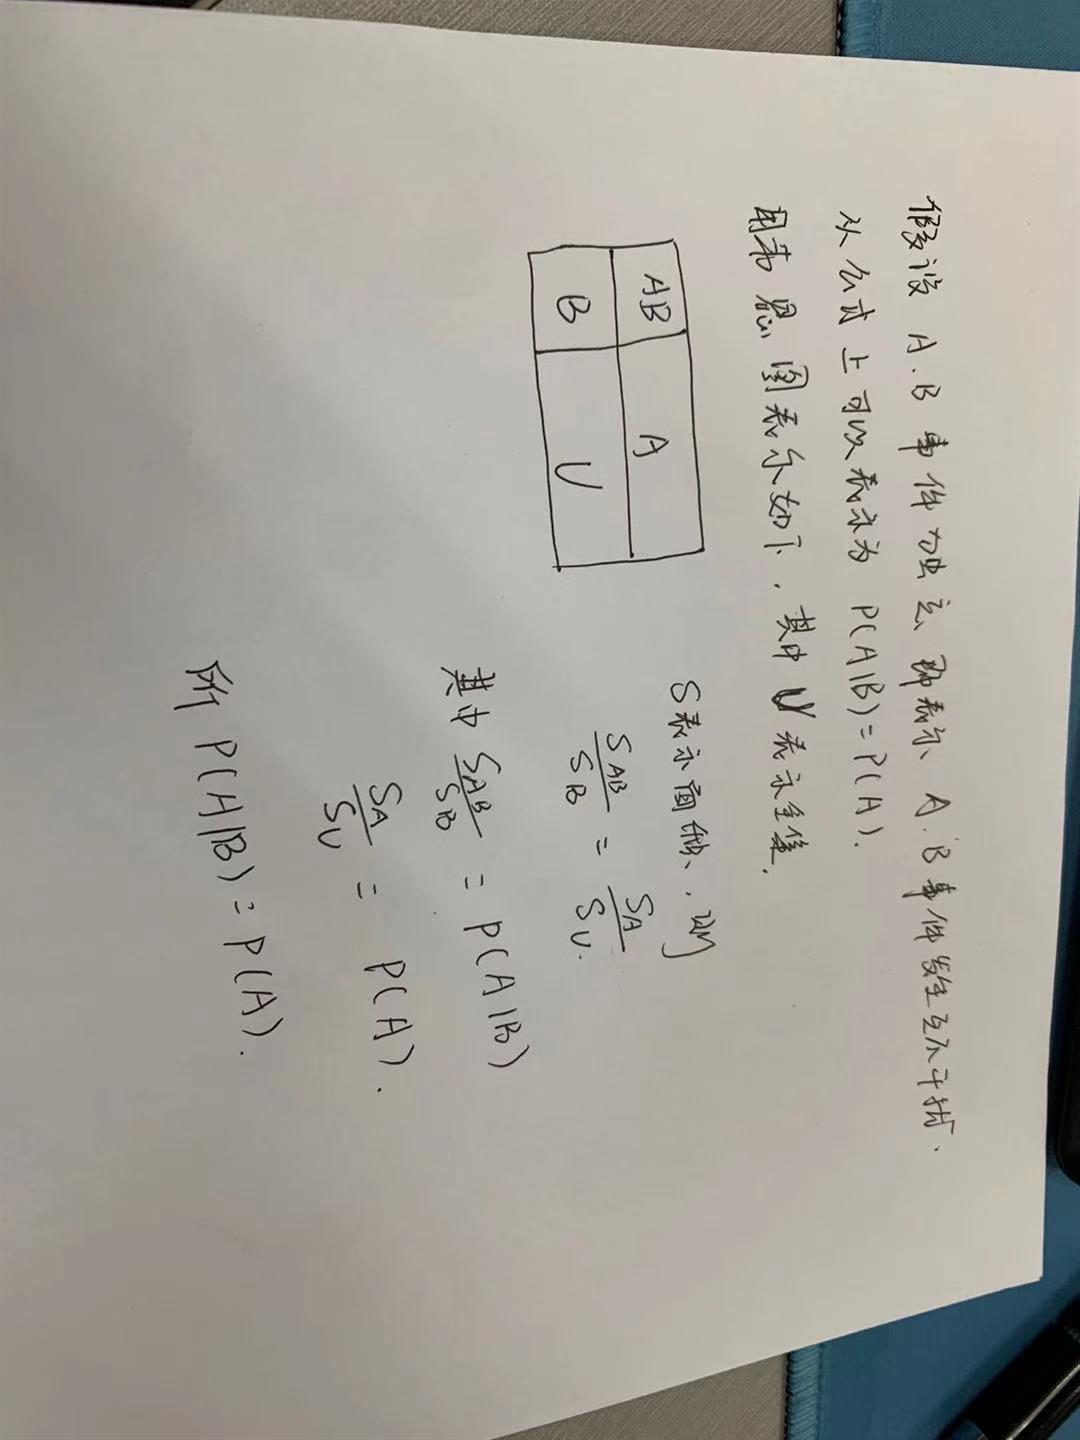 假设 A.B 事件为独立, 那表示 A.B 事件发生互不干扰.
从公式上可以表示为 P(A|B)=P(A).
用韦恩图表示如下, 其中 U 表示全集.
AB A
B U
S表示面积, 则
S_AB/S_B = S_A/S_U.
其中 S_AB/S_B = P(A|B)
S_A/S_U = P(A).
所以 P(A|B)=P(A).